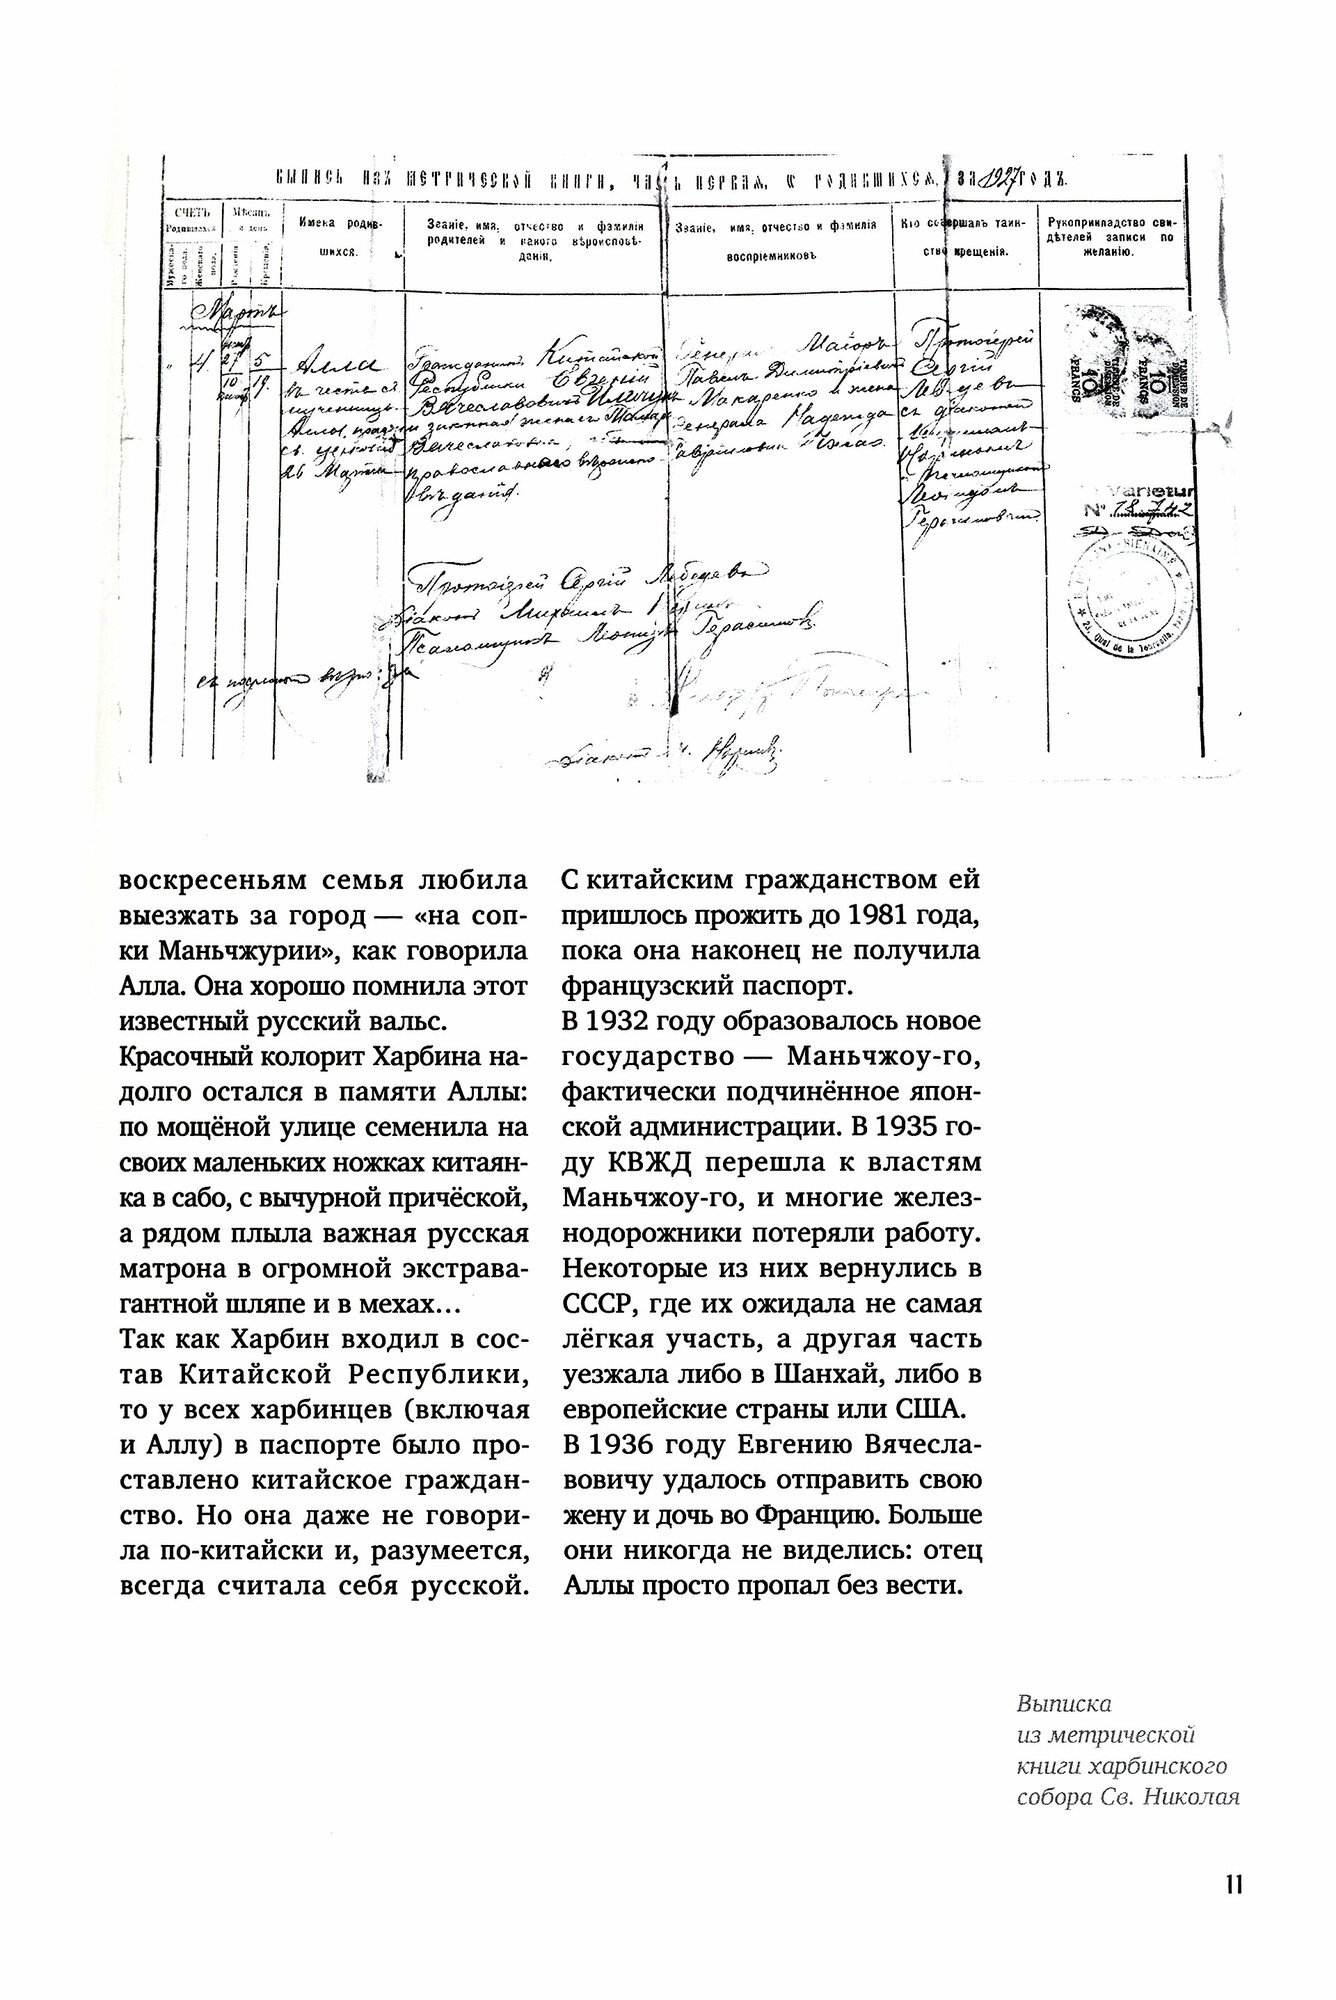 ВЫПИСЬ ИЗЪ МЕТРИЧЕСКОЙ КНИГИ, ЧАСТЬ ПЕРВАЯ, О РОДИВШИХСЯ, ЗА 1927 ГОДЪ.
СЧЕТЪ
Родившихся
Мужеска-
го пола.
Женскаго
пола.
Мѣсяцъ
и день
Рожденія
Крещенія.
Имена родив-
шихся.
Званіе, имя, отчество и фамилія
родителей и какого вѣроисповѣ-
данія.
Званіе, имя, отчество и фамилія
воспріемниковъ
Кто совершалъ таин-
ство крещенія.
Рукоприкладство сви-
дѣтелей записи по
желанію.
Мартъ
4
27
5
10
19.
Алла
въ честь св
мученицы
26 Марта
Гражданинъ Китайской
Республики Евгеній
Вячеславовичъ
и законная жена его Тамара
Вячеславовна,
православнаго вѣроиспо-
вѣданія.
Генералъ Маіоръ
Павелъ Димитріевичъ
Макаренко и жена
генерала Надежда
Протоіерей
Сергій
Лебедевъ
съ діакономъ
Леонидомъ
Протоіерей Сергій Лебедевъ
Діаконъ Михаилъ
Псаломщикъ Леонидъ Герасимовъ.
Діаконъ
10
FRANCS
10
FRANCS
Varietur
N° 18.742
25, Quai de la Tournelle
воскресеньям семья любила
выезжать за город — «на соп-
ки Маньчжурии», как говорила
Алла. Она хорошо помнила этот
известный русский вальс.
Красочный колорит Харбина на-
долго остался в памяти Аллы:
по мощёной улице семенила на
своих маленьких ножках китаян-
ка в сабо, с вычурной причёской,
а рядом плыла важная русская
матрона в огромной экстрава-
гантной шляпе и в мехах...
Так как Харбин входил в сос-
тав Китайской Республики,
то у всех харбинцев (включая
и Аллу) в паспорте было про-
ставлено китайское граждан-
ство. Но она даже не говори-
ла по-китайски и, разумеется,
всегда считала себя русской.
С китайским гражданством ей
пришлось прожить до 1981 года,
пока она наконец не получила
французский паспорт.
В 1932 году образовалось новое
государство — Маньчжоу-го,
фактически подчинённое япон-
ской администрации. В 1935 го-
ду КВЖД перешла к властям
Маньчжоу-го, и многие желез-
нодорожники потеряли работу.
Некоторые из них вернулись в
СССР, где их ожидала не самая
лёгкая участь, а другая часть
уезжала либо в Шанхай, либо в
европейские страны или США.
В 1936 году Евгению Вячесла-
вовичу удалось отправить свою
жену и дочь во Францию. Больше
они никогда не виделись: отец
Аллы просто пропал без вести.
Выписка
из метрической
книги харбинского
собора Св. Николая
11